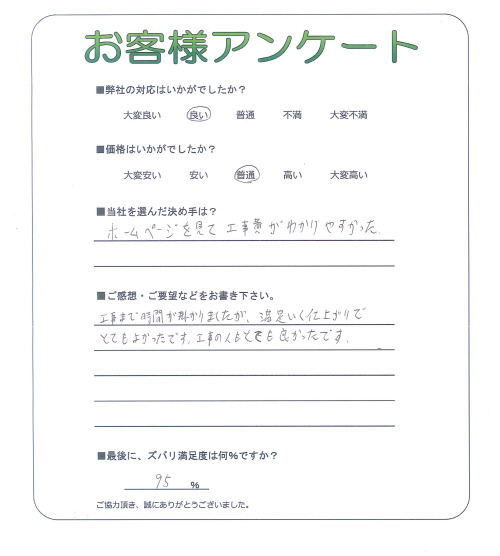 お客様アンケート
■弊社の対応はいかがでしたか？
大変良い 良い 普通 不満 大変不満
■価格はいかがでしたか？
大変安い 安い 普通 高い 大変高い
■当社を選んだ決め手は？
ホームページを見て 工事費がわかりやすかった.
■ご感想・ご要望などをお書き下さい。
工事まで時間が掛かりましたが、満足いく仕上がりで
とてもよかったです. 工事の人もとても良かったです.
■最後に、ズバリ満足度は何%ですか？
95 %
ご協力頂き、誠にありがとうございました。